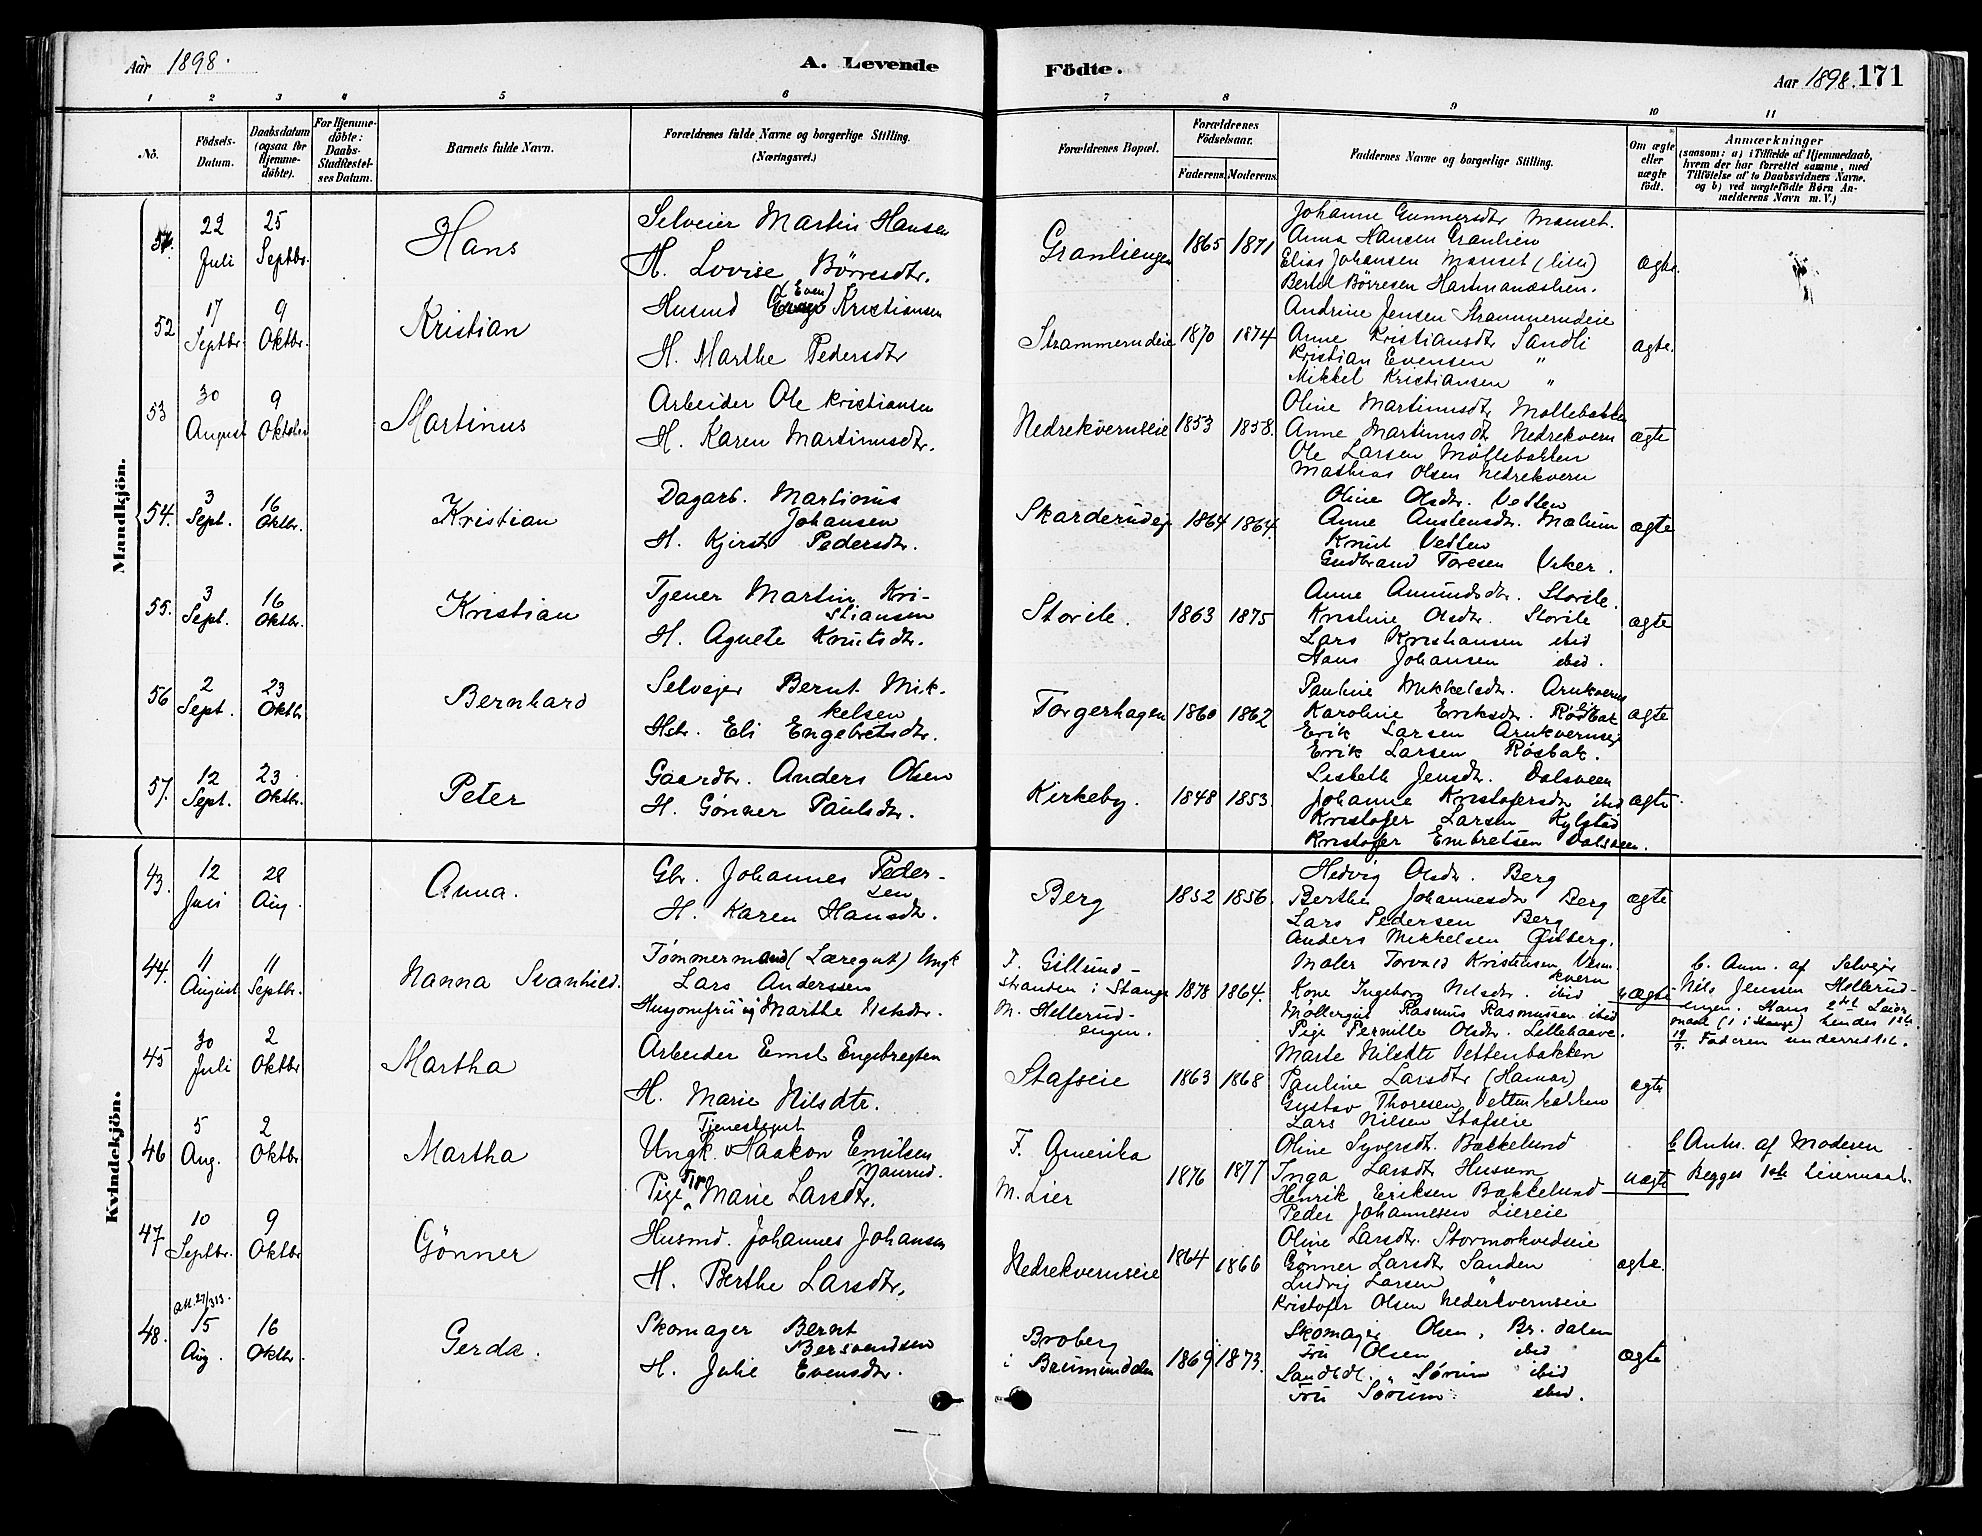 Aar 1898.
A. Levende
Födte.
Aar 1898. 171
1 2 3 4 5 6 7 8 9 10 11
No.
Födsels-Datum.
Daabsdatum (ogsaa for Hjemme-döbte).
For Hjemme-döbte: Daabs-Stadfæstel-ses Datum.
Barnets fulde Navn.
Forældrenes fulde Navne og borgerlige Stilling. (Næringsvei.)
Forældrenes Bopæl.
Forældrenes Födselsaar.
Faderens. Moderens.
Faddernes Navne og borgerlige Stilling.
Om ægte eller uægte født.
Anmærkninger
(saasom: a) i Tilfælde af Hjemmedaab, hvem der har forrettet samme, med Tilføielse af to Daabsvidners Navne. og b) ved uægtefødte Børn An-melderens Navn m. V.)
Mandkjön.
51. 22 Juli 25 Septbr. Hans
Selveier Martin Hansen
H. Lovise Børresdtr.
Granliengen 1865 1871
Johanne Gunnersdtr Manset.
Anna Hansen Granlien
Elias Johansen Manset (lille)
Bertel Børresen Hartmandslien.
ægte.
52 17 Septbr. 9 Oktbr. Kristian
Husmd (Even) Kristiansen
H. Marthe Pedersdtr
Strammerudeie 1870 1874
Andrine Jensen Strammerudeie
Anne Kristiansdtr Sandli
Kristian Evensen "
Mikkel Kristiansen "
ægte.
53 30 August 9 Oktober Martinus
Arbeider Ole Kristiansen
H. Karen Martinusdtr.
Nedrekvernseie 1853 1858.
Oline Martinusdtr Møllebakken
Anne Martinusdtr Nedrekvern
Ole Larsen Møllebakken
Mathias Olsen Nedrekvern
ægte
54. 3 Sept. 16 Oktbr. Kristian
Dagarb. Martinus
Johansen
H. Kjersti Pedersdtr.
Skarderudeje 1864 1864.
Oline Olsdtr. Vetten
Anne Austensdtr. Mælum
Knut Vetten
Gudbrand Toresen Veker.
ægte
55. 3 Sept. 16 Oktbr. Kristian
Tjener Martin Kri-
stiansen
H. Agnete Knutsdtr.
Storile. 1863 1875
Anne Amundsdtr. Storile.
Kristine Olsdtr. Storile
Lars Kristiansen ibid
Hans Johansen ibid.
ægte
56 2 Sept. 23 Oktbr Bernhard
Selvejer Bernt Mik-
kelsen
Hstr. Eli Engebretsdtr.
Torgerhagen 1860 1862
Pauline Mikkelsdtr. Arnkverns
Karoline Eriksdtr. Røsbak
Erik Larsen Arnkvernseje
Erik Larsen Røsbak.
ægte
57. 12 Sept. 23 Oktbr. Peter
Gaardbr. Anders Olsen
H. Gönner Paulsdtr.
Kirkeby. 1848 1853
Lisbeth Jensdtr. Dalsveen
Johanne Kristofersdtr ibid
Kristofer Larsen Kylstad
Kristofer Embretsen Dalsveen.
ægte.
Kvindekjön.
43. 12 Juli 28 Aug. Anna.
Gbr. Johannes Peder-
sen
H. Karen Hansdtr.
Berg 1852 1856.
Hedvig Olsdtr. Berg
Berthe Johannesdtr Berg
Lars Pedersen Berg
Anders Mikkelsen Ørberg.
ægte
44. 11 August 11 Septbr. Nanna Svanhild.
Tømmermand (Læregut) Ungk
Lars Anderssen
Husjomfru Marthe Nilsdtr.
F. Gillund-
stranden i Stange
M. Hellerud-
engen.
1878 1864.
Maler Torvald Kristensen
kvern
Kone Ingeborg Nilsdtr. ibid
Møllergut Rasmus Rasmussen ibid
Pige Pernille Olsdtr. Lillehaave.
uægte
b. Anm. af Selvejer
Nils Jensen Hellerud-
engen. Hans 2det Leier-
maal (1 i Stange) hendes 1ste
19/9. Faderen underrettet.
45 30 Juli 2 Oktbr Martha
Arbeider Emil Engebregtsen
H. Marie Nilsdtr.
Stafseie 1863 1868
Marte Nilsdtr Vettenbakken
Pauline Larsdtr (Hamar)
Gustav Thoresen Vettenbakken
Lars Nilsen Stafseie
ægte
46 5 Aug. 2 Oktbr Martha
Tjenestegut
Ungk. Haakon Emilsen
Naurud.
Pige Marie Larsdtr.
F. Amerika
M. Lier
1876 1877
Oline Syversdt. Bækkelund
Inga Larsdtr Husum
Henrik Eriksen Bækkelund
Peder Johannesen Liereie
uægte
b Anm. af Moderen
Begges 1ste Leiermaal.
47 10 Septbr. 9 Oktbr Gönner
Husmd. Johannes Johansen
H. Berthe Larsdtr.
Nedrekvernseie 1864 1866
Oline Larsdtr. Stormorkvedseie
Gönner Larsdtr Sanden
Ludvig Larsen "
Kristofer Olsen Nederkvernseie
ægte.
att. 27/3 13.
48. 15 Aug. 16 Oktbr. Gerda.
Skomager Bernt
Bersvendsen
H. Julie Evensdtr.
Broberg
i Brumunddalen
1869 1873.
Skomager Olsen, Br. dalen
Fru Olsen ibid
Sandtdl. Sørum ibid
Fru Sørum ibid.
ægte